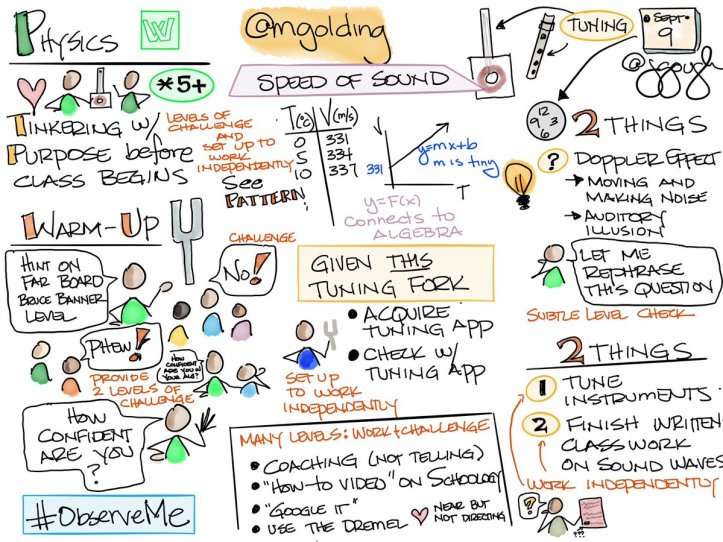 Physics
W
@mgolding
SPEED OF SOUND
TUNING
Sept
9
@jgough
*5+
TINKERING w/
PURPOSE before
CLASS BEGINS
LEVELS OF
CHALLENGE
AND
SET UP TO
WORK
INDEPENDENTLY
SEE
PATTERN
T(°C) V(m/s)
0 331
5 334
10 337
V
331
T
y=mx+b
m is tiny
y=F(x)
connects to
ALGEBRA
12
9 3
6
2 THINGS
?
DOPPLER EFFECT
→ MOVING AND
MAKING NOISE
→ AUDITORY
ILLUSION
LET ME
REPHRASE
THIS QUESTION
SUBTLE LEVEL CHECK
WARM-UP
HINT ON
FAR BOARD
BRUCE BANNER
LEVEL
CHALLENGE
NO!
PHEW!
PROVIDE
2 LEVELS OF
CHALLENGE
HOW
CONFIDENT
ARE YOU IN
YOUR
HOW
CONFIDENT
ARE YOU
?
#ObserveMe
GIVEN THIS
TUNING FORK
• ACQUIRE
TUNING APP
• CHECK w/
TUNING APP
SET UP
TO WORK
INDEPENDENTLY
MANY LEVELS: WORK + CHALLENGE
• COACHING (NOT TELLING)
• "HOW-TO VIDEO" ON SCHOOLOGY
• "GOOGLE IT"
• USE THE DREMEL
NEAR BUT
NOT DIRECTING
2 THINGS
1 TUNE
INSTRUMENTS
2 FINISH WRITTEN
CLASSWORK
ON SOUND WAVES
WORK INDEPENDENTLY
?
???